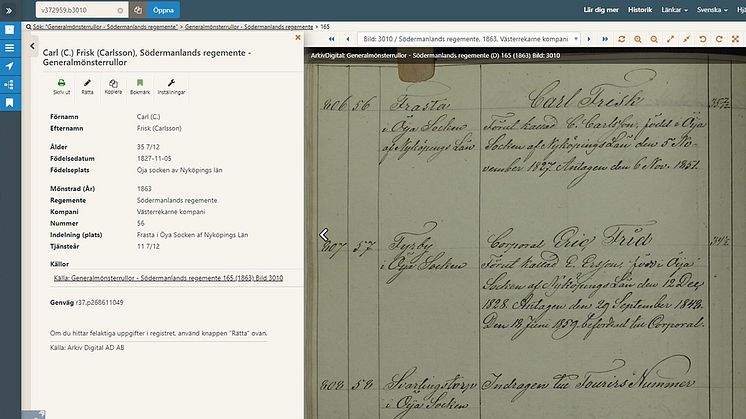 v372959.b3010
Öppna
Lär dig mer
Historik
Länkar
Svenska
Sök: "Generalmönsterrullor - Södermanlands regemente" > Generalmönsterrullor - Södermanlands regemente > 165
Carl (C.) Frisk (Carlsson), Södermanlands regemente - Generalmönsterrullor
Skriv ut
Rätta
Kopiera
Bokmärk
Inställningar
Förnamn Carl (C.)
Efternamn Frisk (Carlsson)
Ålder 35 7/12
Födelsedatum 1827-11-05
Födelseplats Öja socken av Nyköpings län
Mönstrad (År) 1863
Regemente Södermanlands regemente
Kompani Västerrekarne kompani
Nummer 56
Indelning (plats) Frasta i Öya Socken af Nyköpings Län
Tjänsteår 11 7/12
Källor
Källa: Generalmönsterrullor - Södermanlands regemente 165 (1863) Bild 3010
Genväg r37.p268611049
Om du hittar felaktiga uppgifter i registret, använd knappen "Rätta" ovan.
Källa: Arkiv Digital AD AB
Bild: 3010 / Södermanlands regemente, 1863, Västerrekarne kompani
ArkivDigital: Generalmönsterrullor - Södermanlands regemente (D) 165 (1863) Bild: 3010
606 56 Frasta Carl Frisk
i Öya Socken Förut kallad C. Carlsson, född i Öja
af Nyköpings Län Socken af Nyköpings Län den 5 No-
vember 1827. Antagen den 6 Nov. 1851.
607 57 Fyrby Corporal Eric Frid
i Öya Socken Förut kallad E. Ersson, född i Öja
Socken af Nyköpings Län den 12 Dec
1828. Antagen den 29 September 1848.
Den 18 Juni 1859 befordrad till Corporal.
608 58 Indragen till Nummer
i Öya Socken